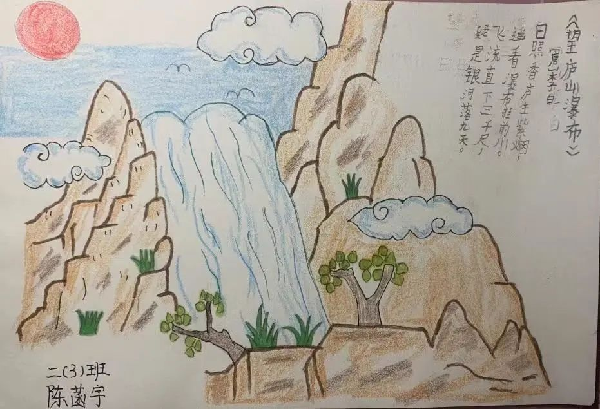 《望庐山瀑布》
唐李白
日照香庐生紫烟
遥看瀑布挂前川。
飞流直下三千尺，
疑是银河落九天。
二(3)班
陈菡宇